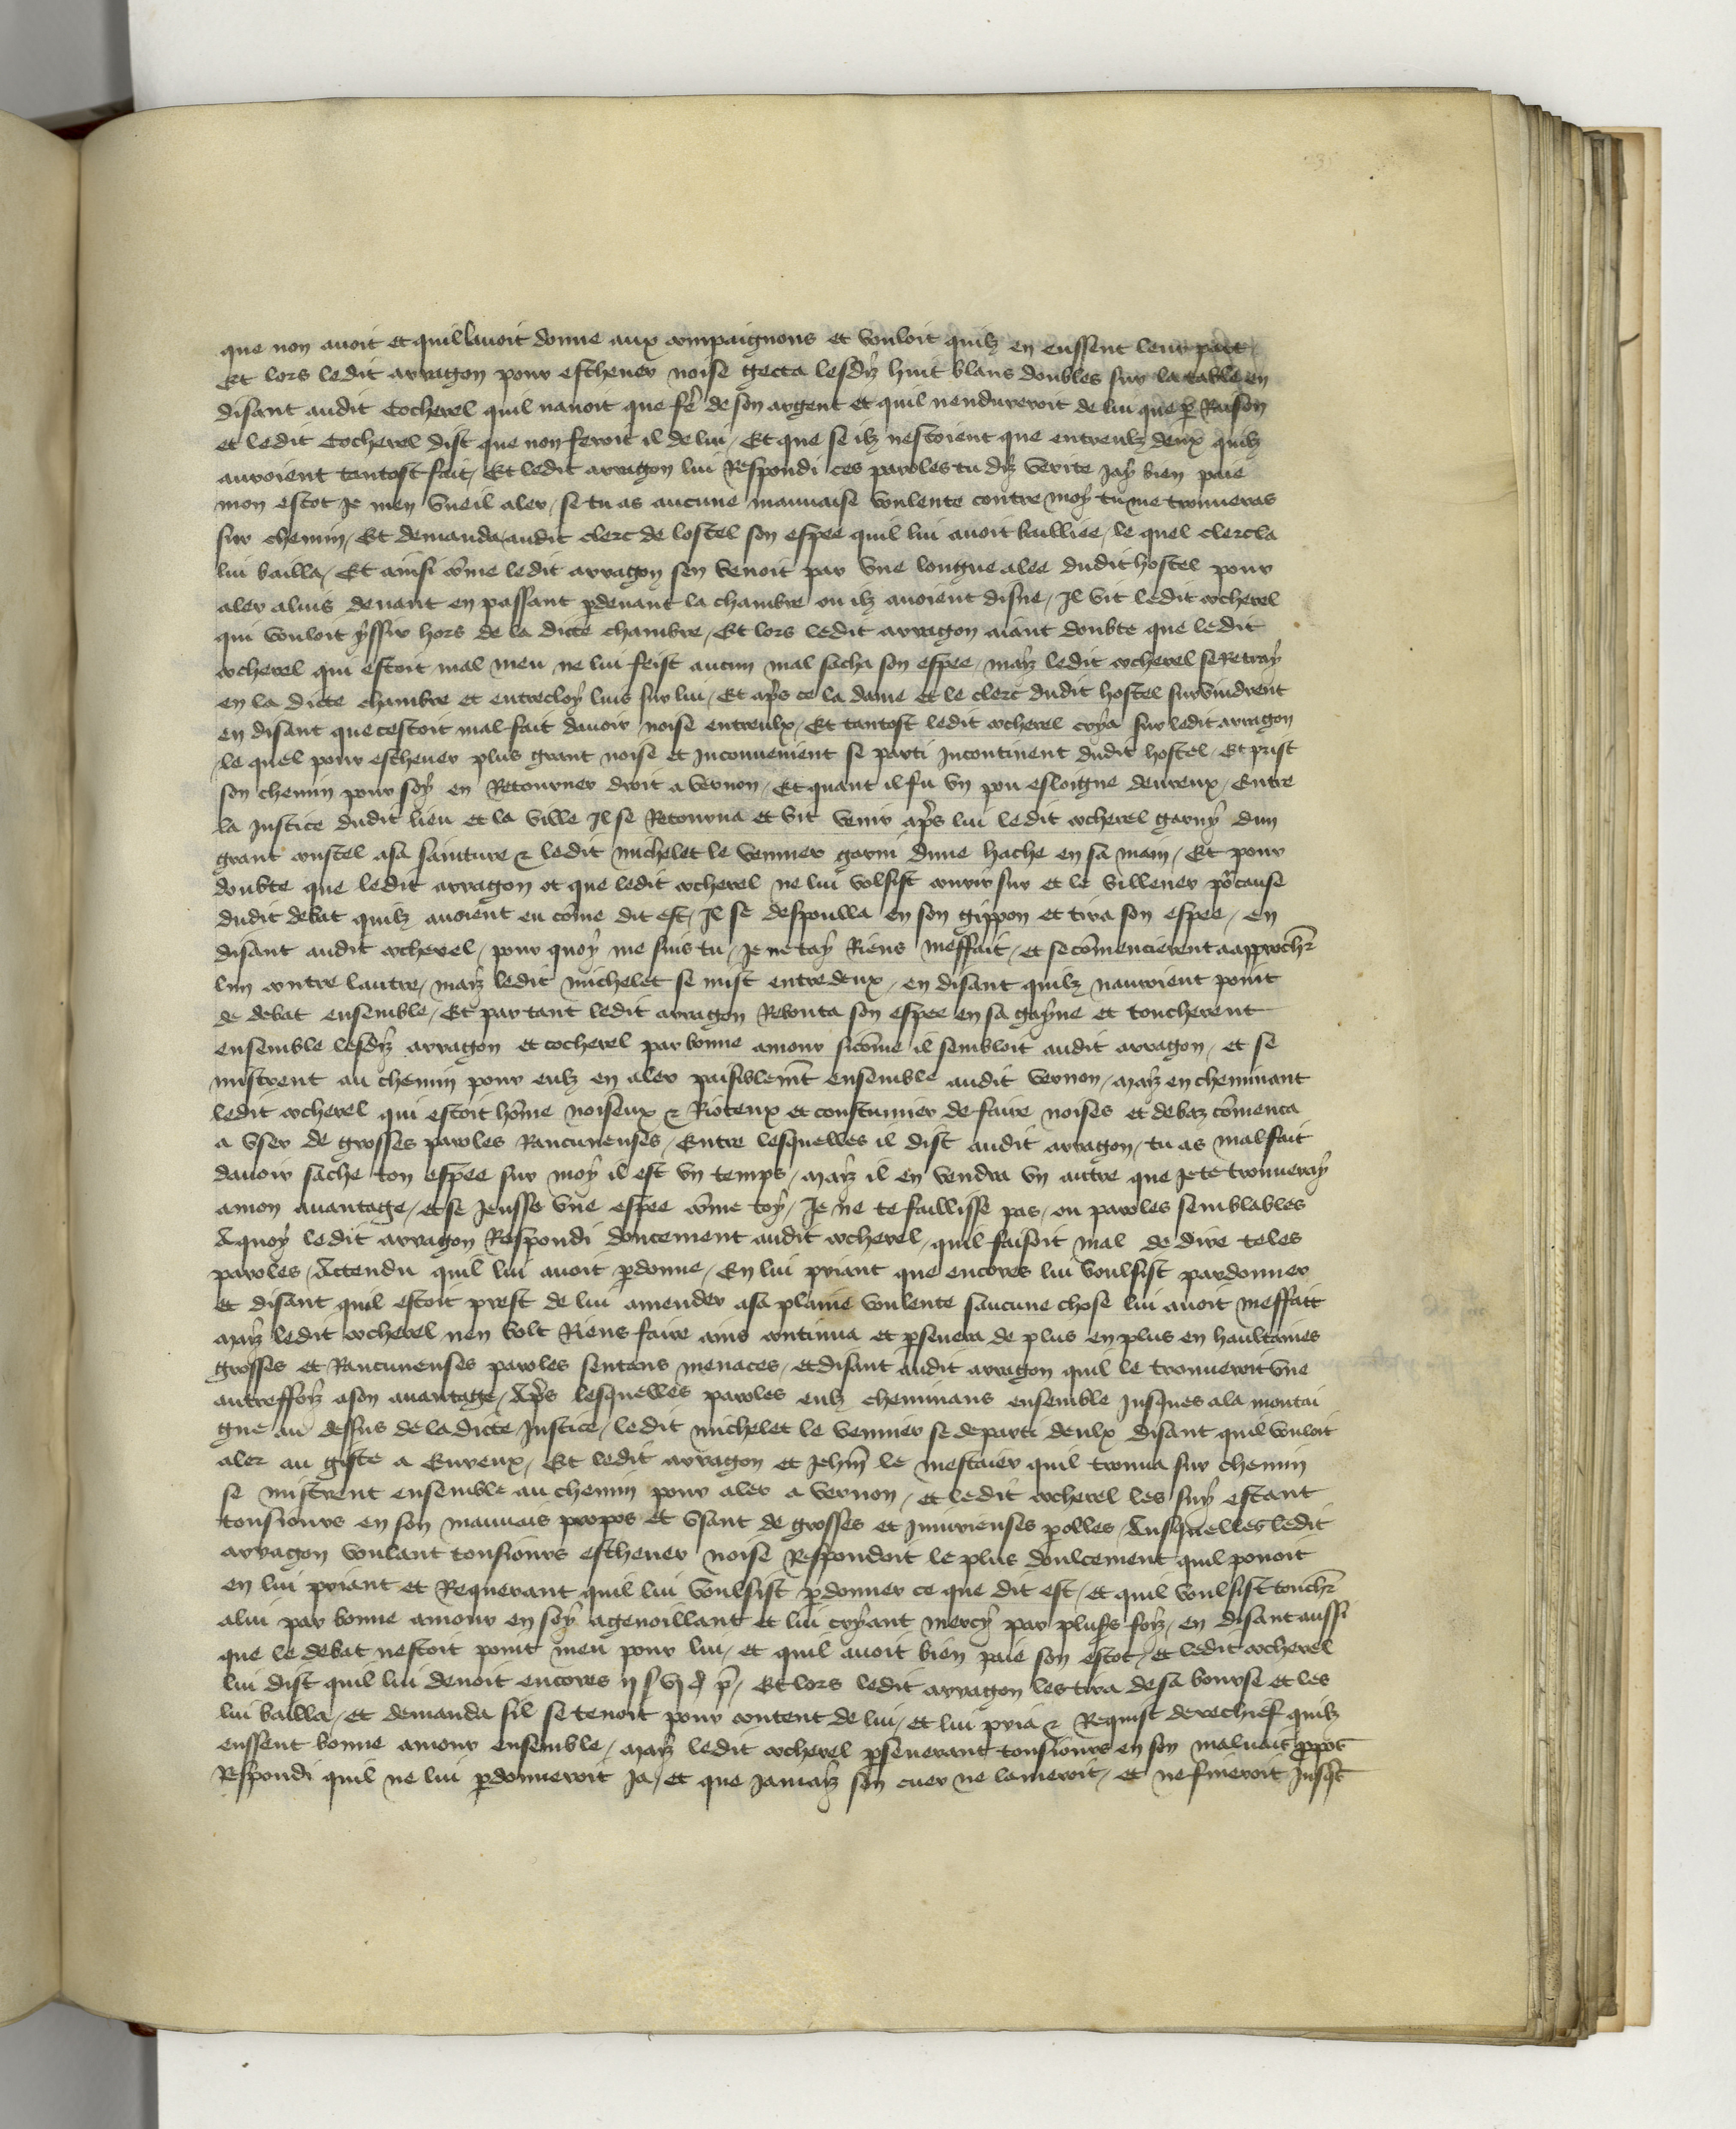 que non avoit et quil lavoit donne aux compaignons et vouloit quilz en eussent leur part
Et lors ledit arragon pour eschever noise gecta lesdiz huit blans doubles sur la table en
disant audit Cocherel quil navoit que fe͛ de son argent et quil nendureroit de lui que p̲ Raison
et ledit Cocherel dist que non feroit il de lui / Et que se ilz nestoient que entreulz deux quilz
auroient tantost fait / Et ledit arragon lui Respondi ces paroles tu diz verite Jay bien paie
mon escot Je men vueil aler / se tu as aucune mauvaise voulente contre moy tu me trouveras
sur chemin / Et demanda audit clerc de lostel son espee quil lui avoit bailliee / le quel clerc la
lui bailla / Et ainsi cõme ledit arragon sen venoit par une longue alee dudit hostel pour
aler a luis devant en passant p̲devant la chambre ou ilz avoient disne / Il vit ledit cocherel
qui vouloit yssir hors de la dicte chambre / Et lors ledit arragon aiant doubte que ledit
cocherel qui estoit mal meu ne lui feist aucun mal sacha son espee / maiz ledit cocherel se Retray
en la dicte chambre et entrecloy luis sur lui / Et ap̃s ce la dame et le clerc dudit hostel survindrent
en disant que cestoit mal fait davoir noise entreulx / Et tantost ledit cocherel crya sur ledit arragon
le quel pour eschever plus grant noise et Inconvenient se parti Incontinent dudit hostel / Et prist
son chemin pour soy en Retourner droit a vernon / Et quant il fu un pou esloigne devreux / Entre
la Justice dudit lieu et la ville Il se Retourna et vit venir ap̃s lui ledit cocherel garny dun
grant coustel a sa sainture & ledit michelet le vennier garni dune hache en sa main / Et pour
doubte que ledit arragon ot que ledit cocherel ne lui volsist courir sur et le villener po͛ cause
dudit debat quilz avoient eu cõme dit est / Il se despoulla en son gippon et tira son espee / en
disant audit cocherel / pour quoy me suis tu / Je ne tay Riens meffait / et se cõmencierent a approch͛
lun contre lautre / maiz ledit michelet se mist entredeux / en disant quilz nauroient point
de debat ensemble / Et par tant ledit arragon Rebouta son espee en sa gayne et toucherent
ensemble lesdiz arragon et cocherel par bonne amour sicõme il sembloit audit arragon / et se
mistrent au chemin pour eulz en aler paisiblem̃t ensemble audit vernon / maiz en cheminant
ledit cocherel qui estoit hõme noiseux & Rioteux et coustumier de faire noises et debaz cõmenca
a user de grosses paroles Rancuneuses / Entre lesquelles il dist audit arragon / tu as mal fait
davoir sache ton espee sur moy il est un temps / maiz il en vendra un autre que Je te trouveray
a mon avantage / et se Jeusse une espee cõme toy / Je ne te faillisse pas / ou paroles semblables
A quoy ledit arragon Respondi doucement audit cocherel / quil faisoit mal de dire teles
paroles / Actendu quil lui avoit p̲donne / En lui priant que encores lui voulsist pardonner
et disant quil estoit prest de lui amender a sa plaine voulente saucune chose lui avoit meffait
maiz ledit cocherel nen volt Riens faire ains continua et p̲severa de plus en plus en haultaines
grosses et Rancuneuses paroles sentans menaces / et disant audit arragon quil le trouveroit une
autreffoiz a son avantage / Ap̃s lesquelles paroles eulz cheminans ensemble Jusques a la montai
gne au dessus de la dicte Justice / ledit michelet le vennier se departi deulx disant quil vouloit
aler au giste a Evreux / Et ledit arragon et Jehan̄ le mestaier quil trouva sur chemin
se mistrent ensemble au chemin pour aler a vernon / et ledit cocherel les suy estant
tousiours en son mauvais propos et usant de grosses et Iniurieuses p̲olles / Ausquelles ledit
arragon voulant tousiours eschever noise Respondoit le plus doulcement quil povoit
en lui priant et Requerant quil lui voulsist p̲donner ce que dit est / et quil voulsist touch͛
a lui par bonne amour en soy agenoillant et lui cryant mercy par plus͛s foiz / en disant aussi
que le debat nestoit point meu pour lui / et quil avoit bien paie son escot / et ledit cocherel
lui dist quil lui devoit encores ij s vj d p̃ / Et lors ledit arragon les tira de sa bourse et les
lui bailla / et demanda sil se tenoit pour content de lui / et lui pria & Requist derechief quilz
eussent bonne amour ensemble / maiz ledit cocherel p̲severant tousiours en son malvait ꝓpos
Respondi quil ne lui p̲donneroit Ja / et que Jamaiz son cuer ne lameroit / et ne fineroit Jusq̃s